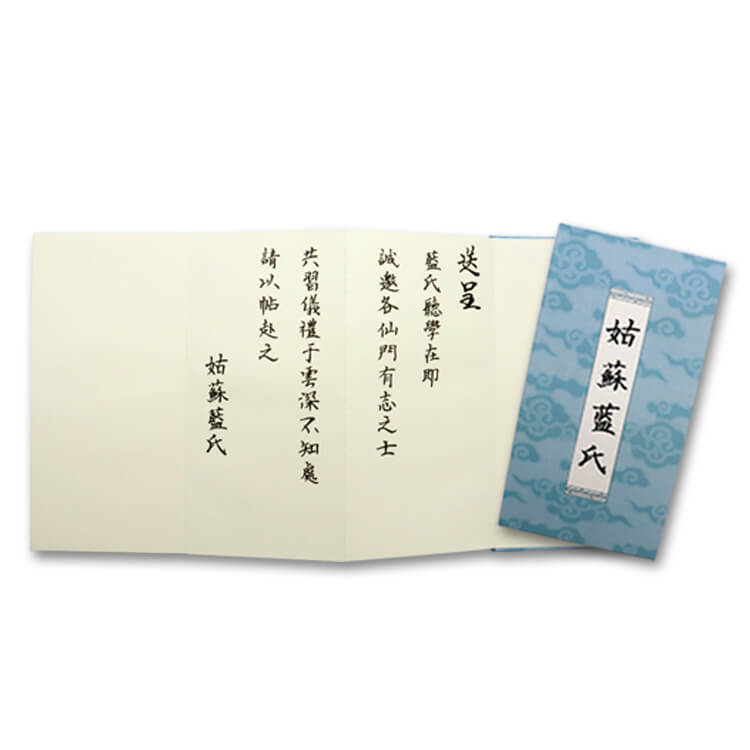 送呈
藍氏聽學在即
誠邀各仙門有志之士
共習儀禮于雲深不知處
請以帖赴之
姑蘇藍氏
姑蘇蓝氏